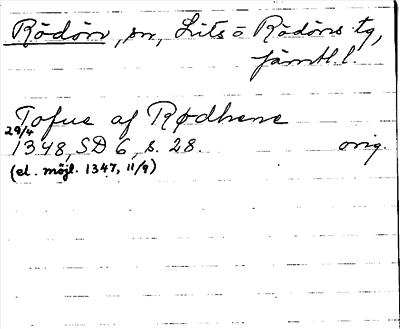 Rödön, sn, Lits o Rödöns tg,
jämtl. l.
Tofue af Rødhene
29/4
1348, SD 6, s. 28. orig.
(el. möjl. 1347, 11/9)